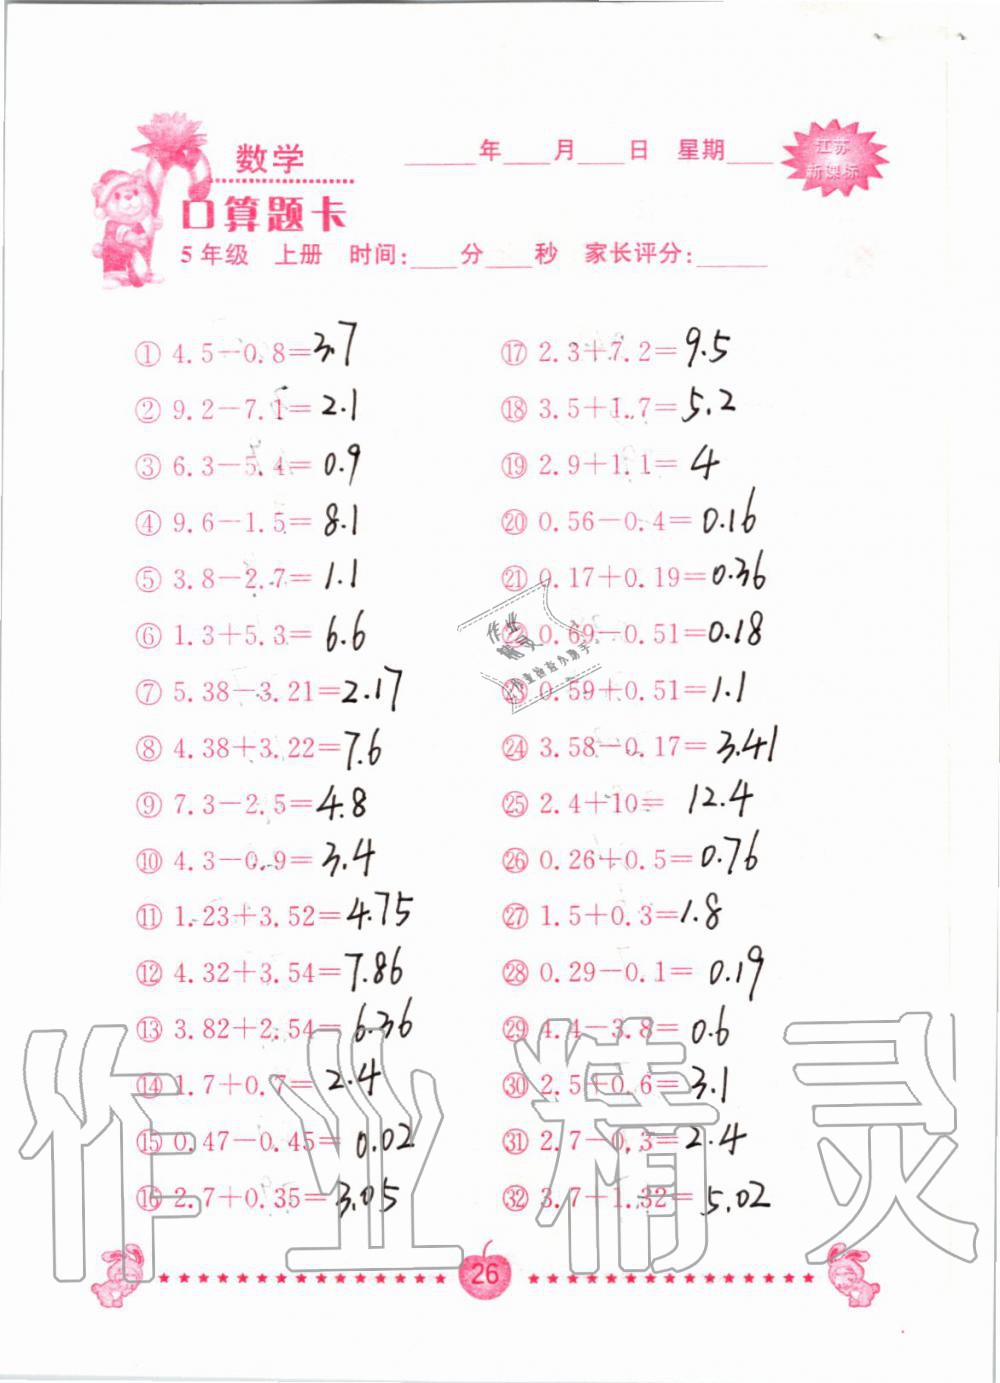 数学
____年____月____日 星期____
江苏
新课标
口算题卡
5年级 上册 时间:____分____秒 家长评分:______
① 4.5－0.8＝3.7
② 9.2－7.1＝2.1
③ 6.3－5.4＝0.9
④ 9.6－1.5＝8.1
⑤ 3.8－2.7＝1.1
⑥ 1.3＋5.3＝6.6
⑦ 5.38－3.21＝2.17
⑧ 4.38＋3.22＝7.6
⑨ 7.3－2.5＝4.8
⑩ 4.3－0.9＝3.4
⑪ 1.23＋3.52＝4.75
⑫ 4.32＋3.54＝7.86
⑬ 3.82＋2.54＝6.36
⑭ 1.7＋0.7＝2.4
⑮ 0.47－0.45＝0.02
⑯ 2.7＋0.35＝3.05
⑰ 2.3＋7.2＝9.5
⑱ 3.5＋1.7＝5.2
⑲ 2.9＋1.1＝4
⑳ 0.56－0.4＝0.16
㉑ 0.17＋0.19＝0.36
㉒ 0.69－0.51＝0.18
㉓ 0.59＋0.51＝1.1
㉔ 3.58－0.17＝3.41
㉕ 2.4＋10＝12.4
㉖ 0.26＋0.5＝0.76
㉗ 1.5＋0.3＝1.8
㉘ 0.29－0.1＝0.19
㉙ 4.4－3.8＝0.6
㉚ 2.5＋0.6＝3.1
㉛ 2.7－0.3＝2.4
㉜ 3.7＋1.32＝5.02
作业
精灵
作业检查小助手
作业精灵
26